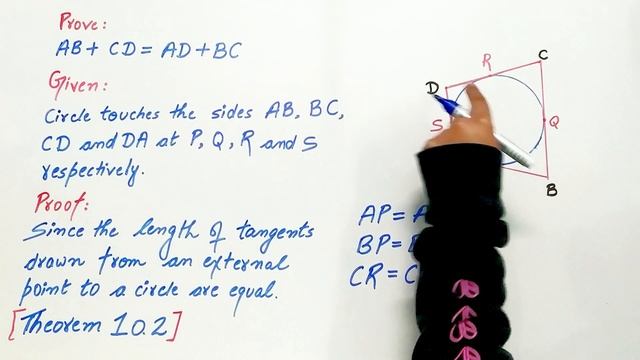 Prove:
AB + CD = AD + BC
Given:
Circle touches the sides AB, BC,
CD and DA at P, Q, R and S
respectively.
Proof:
Since the length of tangents
drawn from an external
point to a circle are equal.
[Theorem 10.2]
C
R
D
S
Q
B
AP = A
BP =
CR = C